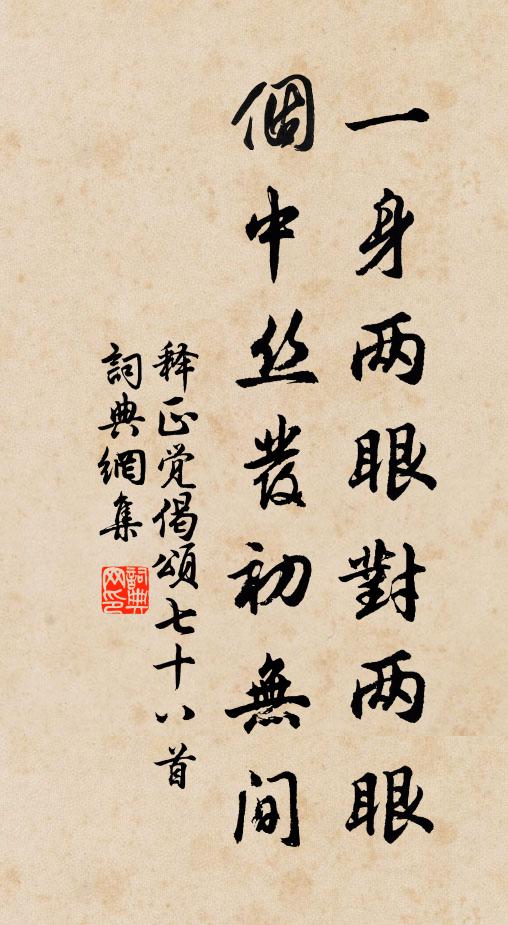 一身两眼對两眼
個中丝發初無間
释正觉偈頌七十八首
詞典網集
詞典网印